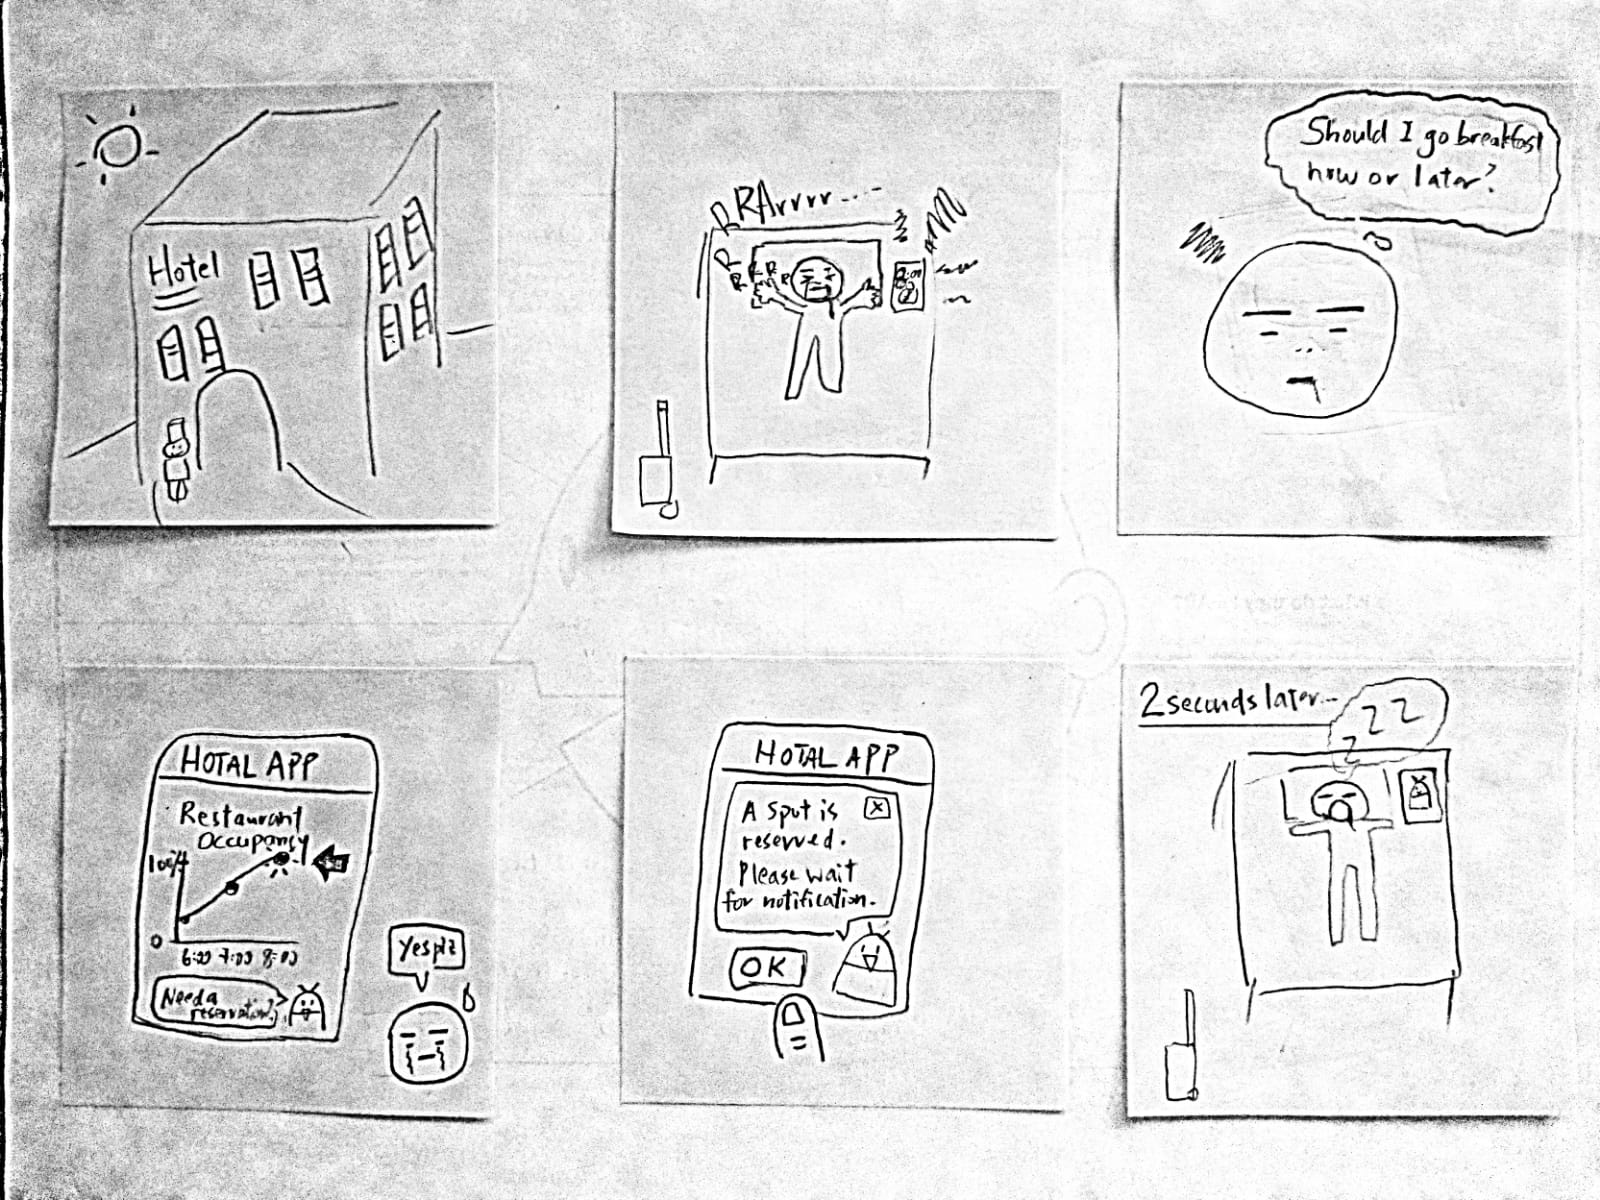 Hotel
RRArrrr....
R
R R R R
Should I go breakfast
now or later?
HOTAL APP
Restaurant
Occupancy
100%
0
6:00 7:00 8:00
Need a
reservation?
Yes plz
HOTAL APP
A spot is
reserved.
Please wait
for notification.
X
OK
2 seconds later...
Z Z
Z